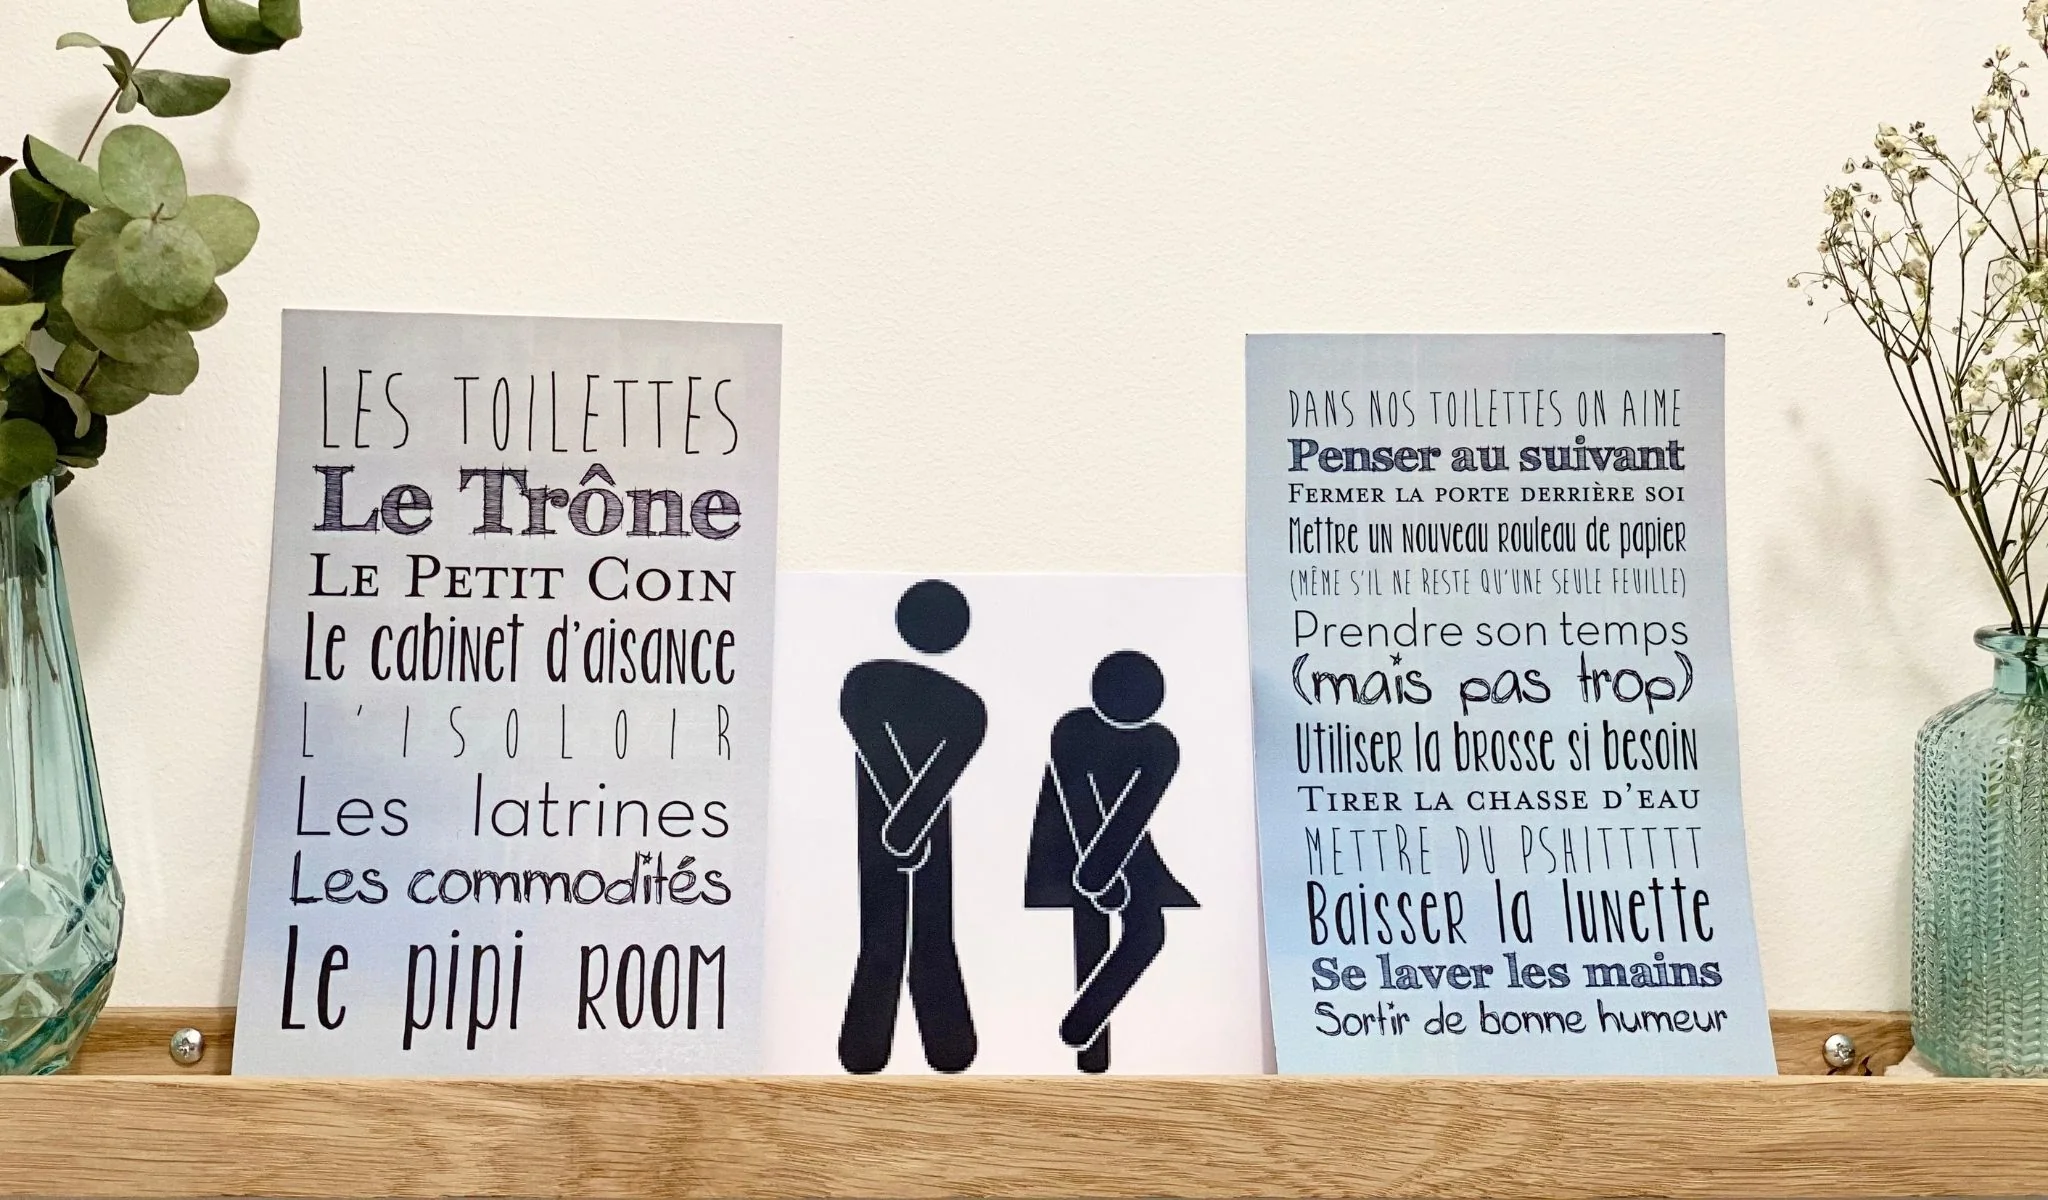 LES TOILETTES
Le Trône
LE PETIT COIN
Le cabinet d'aisance
L'ISOLOIR
Les latrines
Les commodités
Le pipi ROOM
DANS NOS TOILETTES ON AIME
Penser au suivant
FERMER LA PORTE DERRIÈRE SOI
Mettre un nouveau rouleau de papier
(MÊME S'IL NE RESTE QU'UNE SEULE FEUILLE)
Prendre son temps
(mais pas trop)
Utiliser la brosse si besoin
TIRER LA CHASSE D'EAU
METTRE DU PSHITTTTT
Baisser la lunette
Se laver les mains
Sortir de bonne humeur